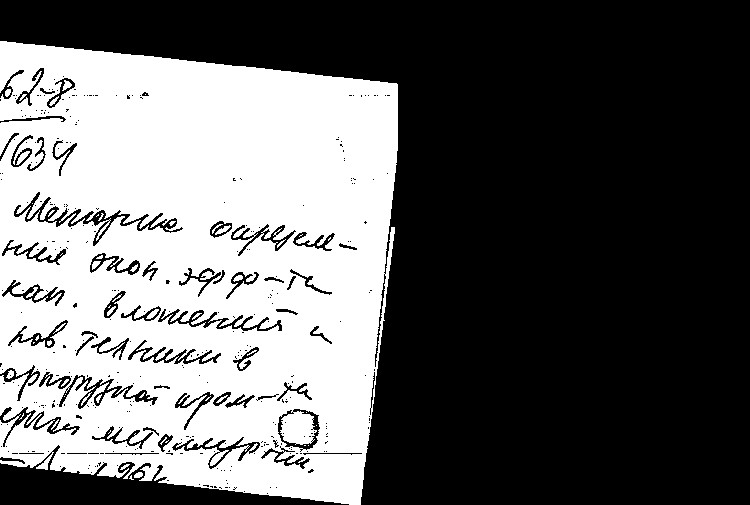 62-8
1634
Методика определе-
ния экон. эфф-ти
кап. вложений и
нов. техники в
горнорудной пром-ти
черной металлургии.
1962